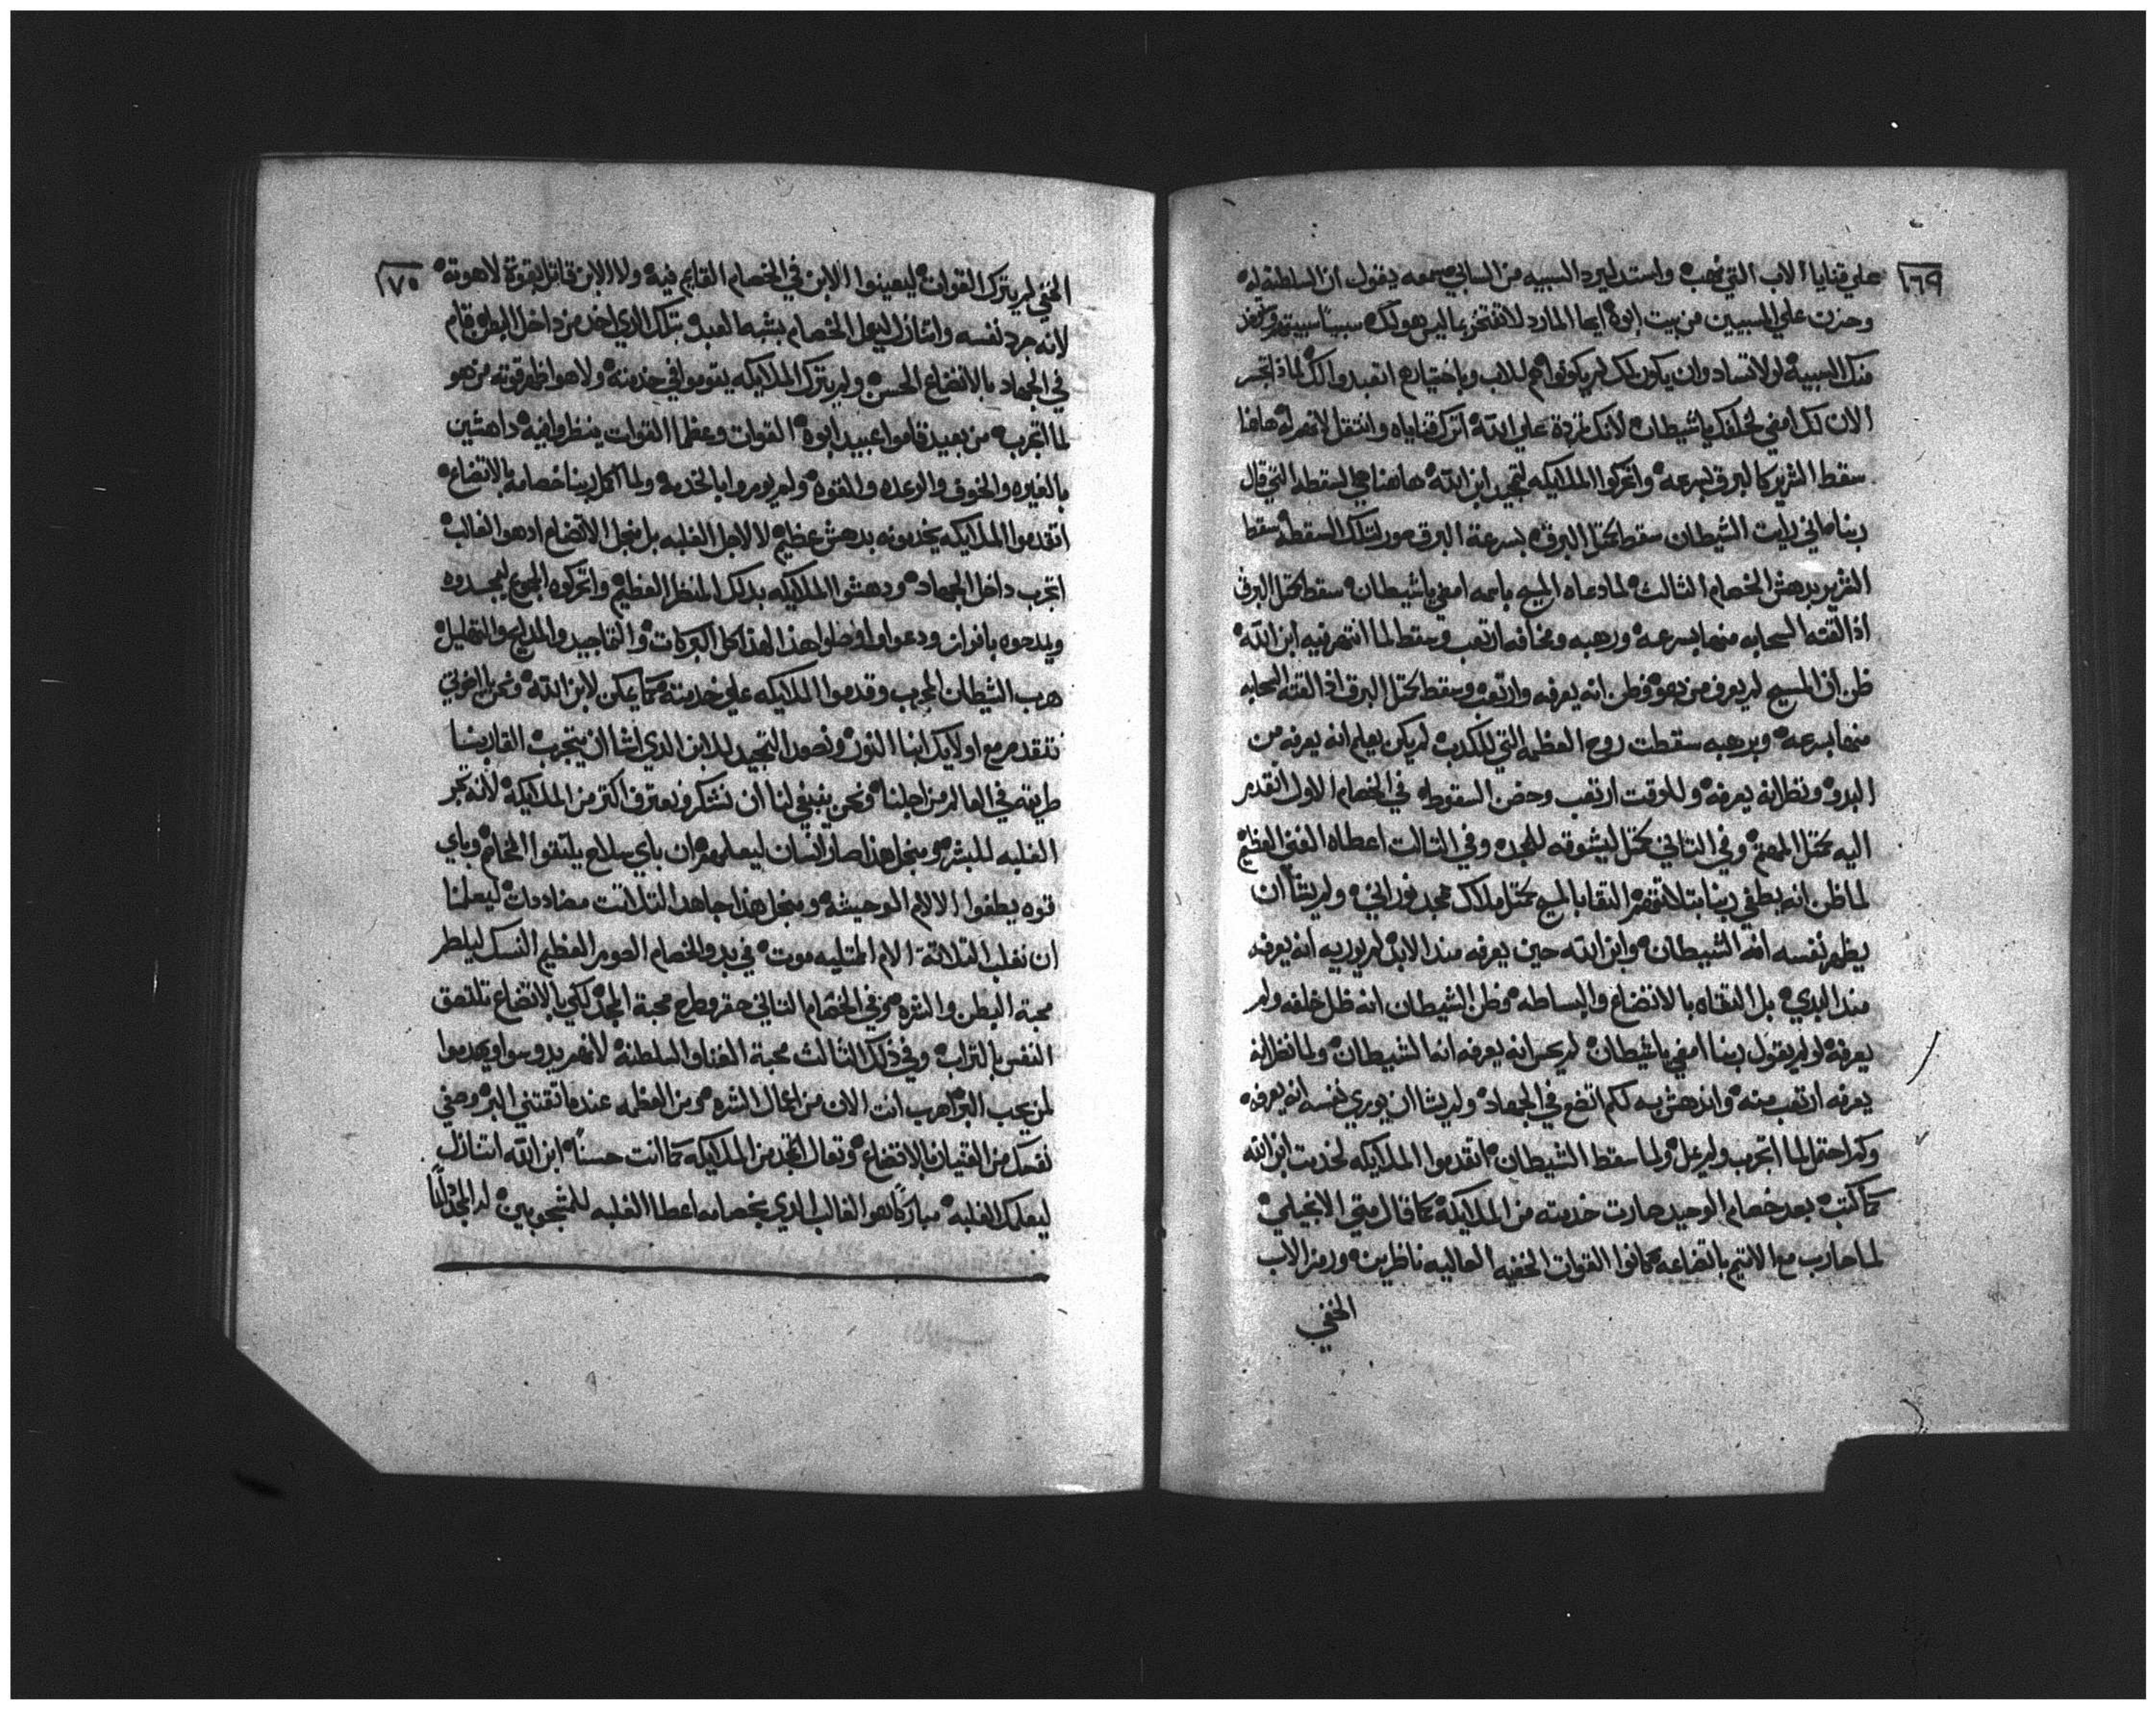 ١٦٩
علي قنايا الاب التي نهب واستد ليرد السبيه من السابي سمعه يقول ان السلطنه له
وحزت علي المسبيين من بيت ابوه ايها المارد لا تفتخر بما ليس هو لك سبيا سبيتهم
منك السبيه لولا تساد وان يكون لك لم يكونوا هم للاب وباختيارهم اتعبدوا لك لماذا تجسر
الان لك امضي لخلفك ياشيطان لانك تمردة علي الله اترك قناياه وانتقل لا تمر له هاهنا
سقط الشرير كالبرق بسرعه واتحركوا الملايكه لتمجيد ابن الله هاهنا هي السقطه التي قال
ربنا اني رايت الشيطان سقط بمتل البرق بسرعة البرق صور لتلك السقطه سقط
الشرير بدهش الخصام التالت لما دعاه المسيح باسمه امضي ياشيطان سقط كمتل البرق
اذ القته السحابه منها بسرعه ورهبه ومخافه ارتعب وسقط لما انتهر فيه ابن الله
ظن ان المسيح لم يعرف من هو وظن انه يعرفه وارتعب وسقط كمتل البرق اذ القته السحابه
منها بسرعه وبرهبه سقطت روح العظمه التي للكدب لم يكن يعلم انه يعرفه من
البدو ونظر انه يعرفه وللوقت ارتعب وحضن السقوط في الخصام الاول اتقدم
اليه بمتل المهتم وفي التاني بمتل ليشوقه للمجد وفي التالت اعطاه الغني العظيم
لما ظن انه يطغي ربنا بتلاتتهم التقا بالمسيح بمتل ملاك مجد نوراني ولم يشا ان
يظهر نفسه انه الشيطان وابن الله حين يعرفه مند الابد لم يوريه انه يعرفه
مند البدي بل التقاه بالاتضاع والبساطه وظن الشيطان انه ظل خلفه ولم
يعرفه لو لم يقول ربنا امضي ياشيطان لم يحس انه يعرفه انه الشيطان ولما نظر انه
يعرفه ارتعب منه واندهش به لكم اتضع في الجهاد ولم يشا ان يوري نفسه انه يعرفه
وكم احتمل لما اتجرب ولم يمل ولما سقط الشيطان اتقدموا الملايكه لخدمت ابن الله
كما كتب بعد خصام الوحيد صارت خدمته من الملايكه كما قال متي الانجيلي
لما حارب مع الاتيم باتضاعه كانوا القوات الخفيه العاليه ناظرين ورمز الاب
الخفي
١٧٠
الخفي لم يترك القوات ليعينوا الابن في الخصام القايم فيه ولا الابن قاتل بقوة لاهوته
لانه جرد نفسه واتنازل ليعمل الخصام بشبه العبد بتلك الذي اخد من داخل البطن قام
في الجهاد بالاتضاع الحسن ولم يترك الملايكه يقوموا في خدمته ولا هو اظهر قوته من هو
لما اتجرب من بعيد قاموا عبيد ابوه القوات وعظما القوات ينظروا فيه داهشين
بالغيره والخوف والرعده والقوه ولم يومروا بالخدمه ولما اكمل ربنا خصامه بالاتضاع
اتقدموا الملايكه يخدمونه بدهش عظيم لا لاجل الغلبه بل منجل الاتضاع اد هو الغالب
اتجرب داخل الجهاد ودهشوا الملايكه بدلك المنظر العظيم واتحركوه الجموع ليمجدوه
ويمدحوه بافواه ودعوا واوصلوا هذا لهذا كل البركات والتماجيد والمدايح والتهاليل
هرب الشيطان المجرب وقدموا الملايكه علي خدمته كما يمكن لابن الله ونحن يا اخوتي
نتقدم مع اولايك ابنا النور ونصعد التمجيد للابن الدي شا ان يتجرب القا ربنا
طريقه في العالم من اجلنا ونحن ينبغي لنا ان نشكر ونعترف اكتر من الملايكه لانه تجر
الغلبه للبشر ومنجل هذا صار انسان ليعلمهم ان باي سلاح يلتقوا الخصام وباي
قوه يطفوا الالام الوحيشه ومنجل هذا جاهد التلاتت مضاددات ليعلمنا
ان نغلب التلاتة الام الممتليه موت في بدو الخصام الصوم العظيم النسك ليبطل
محبة البطن والشره وفي الخصام التاني حقر وطرح محبة المجد لكي بالاتضاع تلتصق
النفس بالتراب وفي ذلك التالت محبة الغنا والسلطنه لانهم يدوسوا ويهدموا
لمن يحب البر اهرب انت الان من اعمال الشره ومن العظمه عندما تقتني البر وصفي
نفسك من القنيان بالاتضاع وتعال اتمجد من الملايكه كما انت حسنا ابن الله اتنازل
ليعلمك الغلبه مبارك هو الغالب الدي بخصامه اعطا الغلبه للمتجوبين له المجد لنا